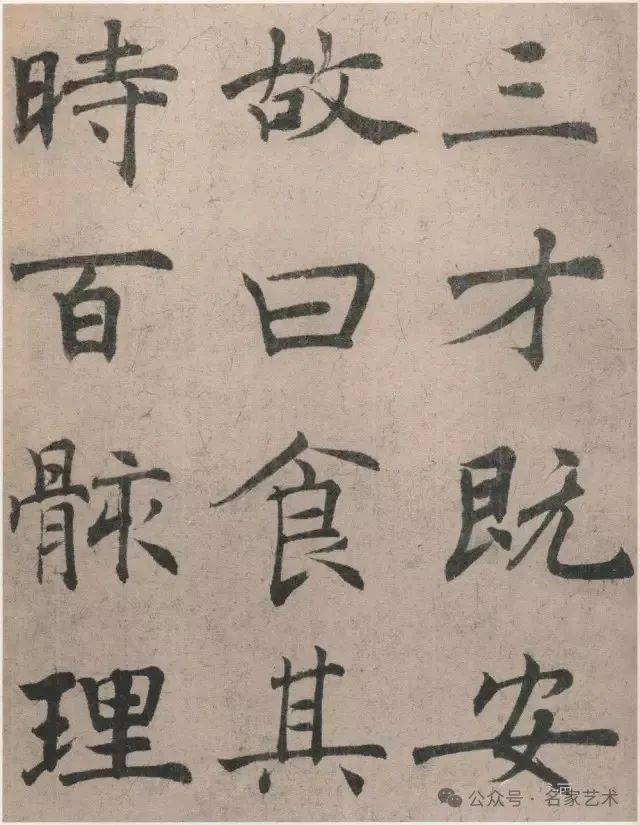 三才既安
故曰食其
時百骸理
公众号·名家艺术